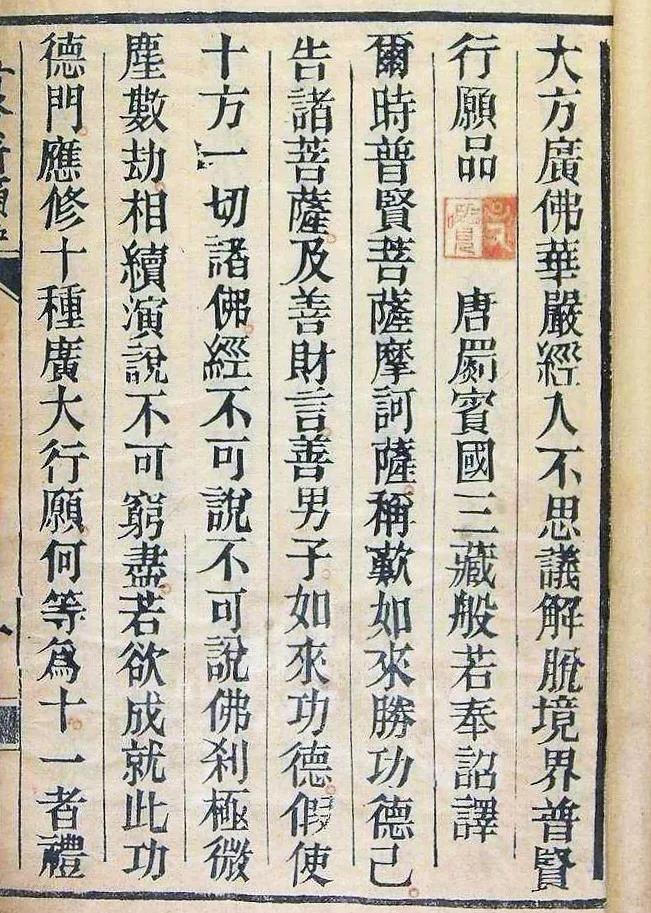 大方廣佛華嚴經入不思議解脫境界普賢
行願品　唐罽賓國三藏般若奉詔譯
爾時普賢菩薩摩訶薩稱歎如來勝功德已
告諸菩薩及善財言善男子如來功德假使
十方一切諸佛經不可說不可說佛刹極微
塵數劫相續演說不可窮盡若欲成就此功
德門應修十種廣大行願何等爲十一者禮